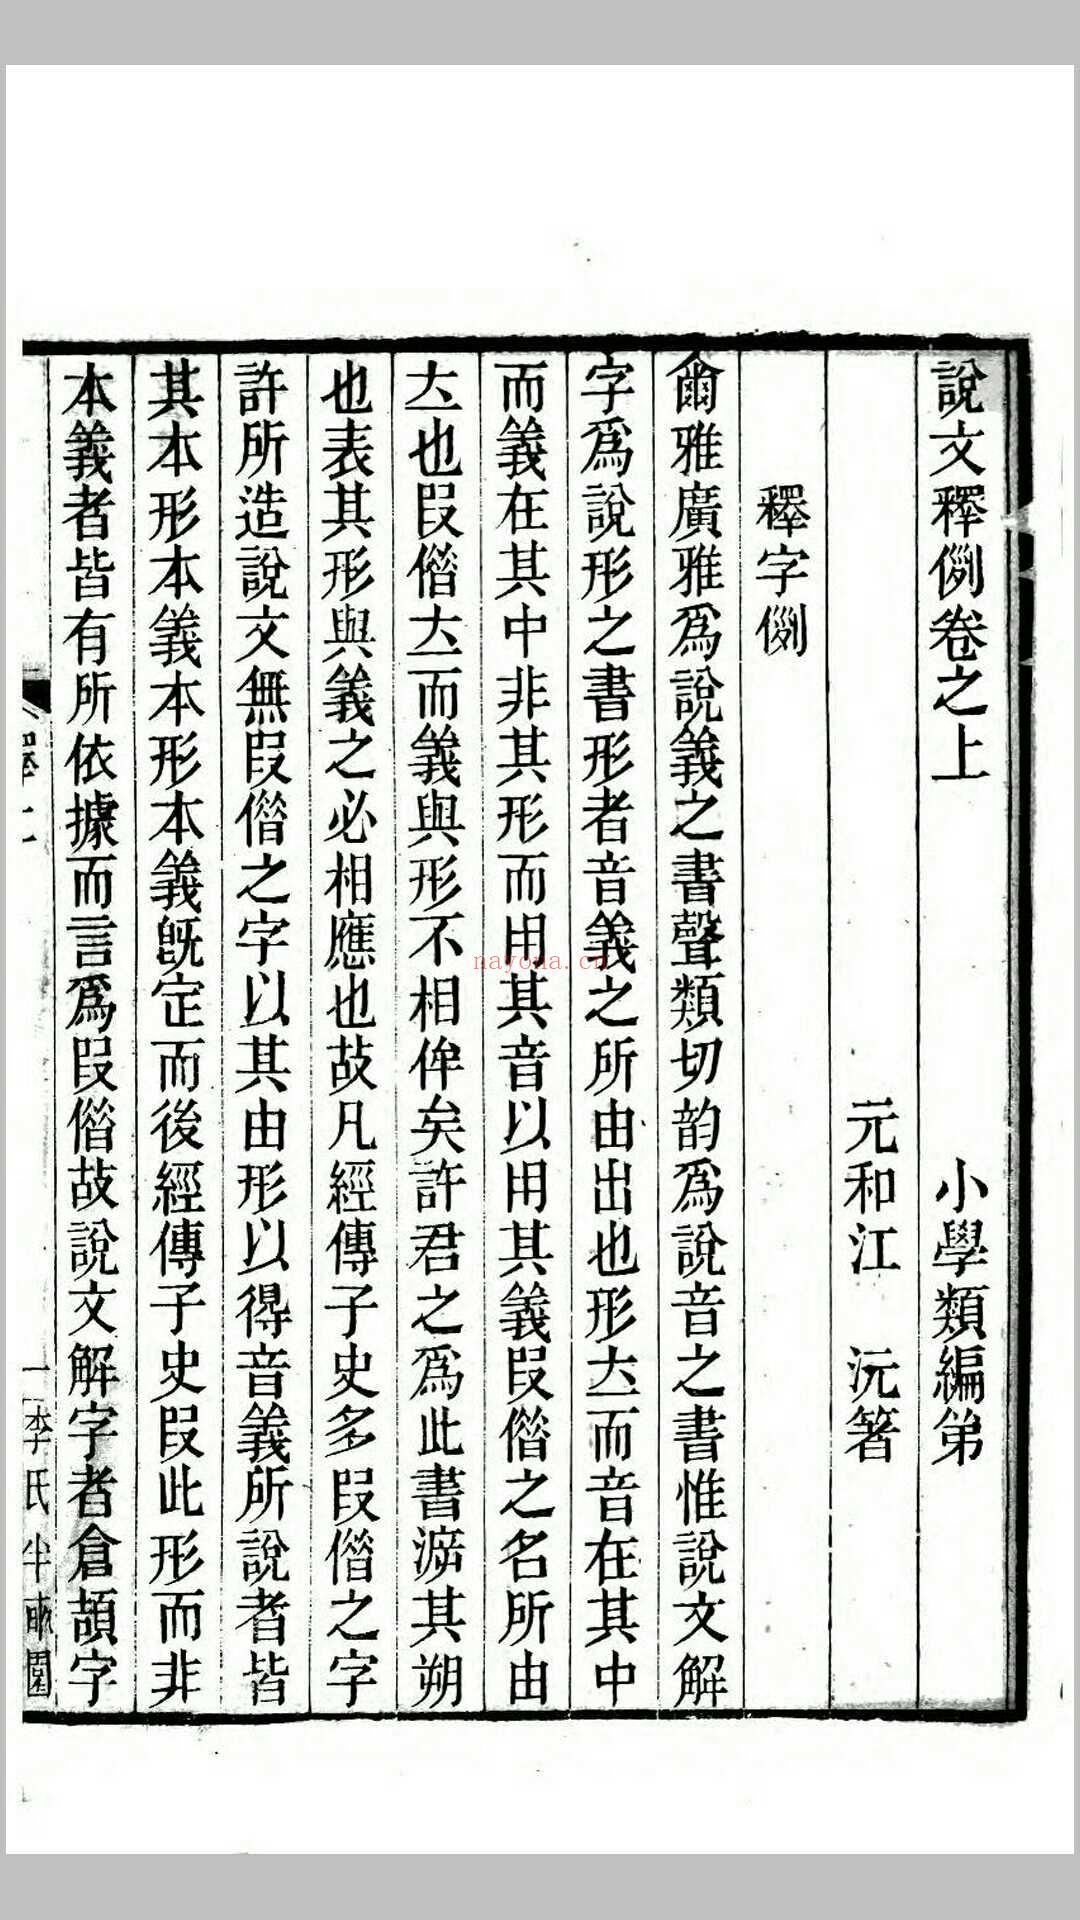 說文釋例卷之上 小學類編弟
元和江 沅箸
釋字例
爾雅廣雅爲說義之書聲類切韵爲說音之書惟說文解
字爲說形之書形者音義之所由出也形𠀉而音在其中
而義在其中非其形而用其音以用其義叚偺之名所由
𠀉也叚偺𠀉而義與形不相侔矣許君之爲此書㴑其朔
也表其形與義之必相應也故凡經傳子史多叚偺之字
許所造說文無叚偺之字以其由形以得音義所說者皆
其本形本義本形本義旣定而後經傳子史叚此形而非
本義者皆有所依據而言爲叚偺故說文解字者倉頡字
釋上
一
李氏半畝園
nayona.cn